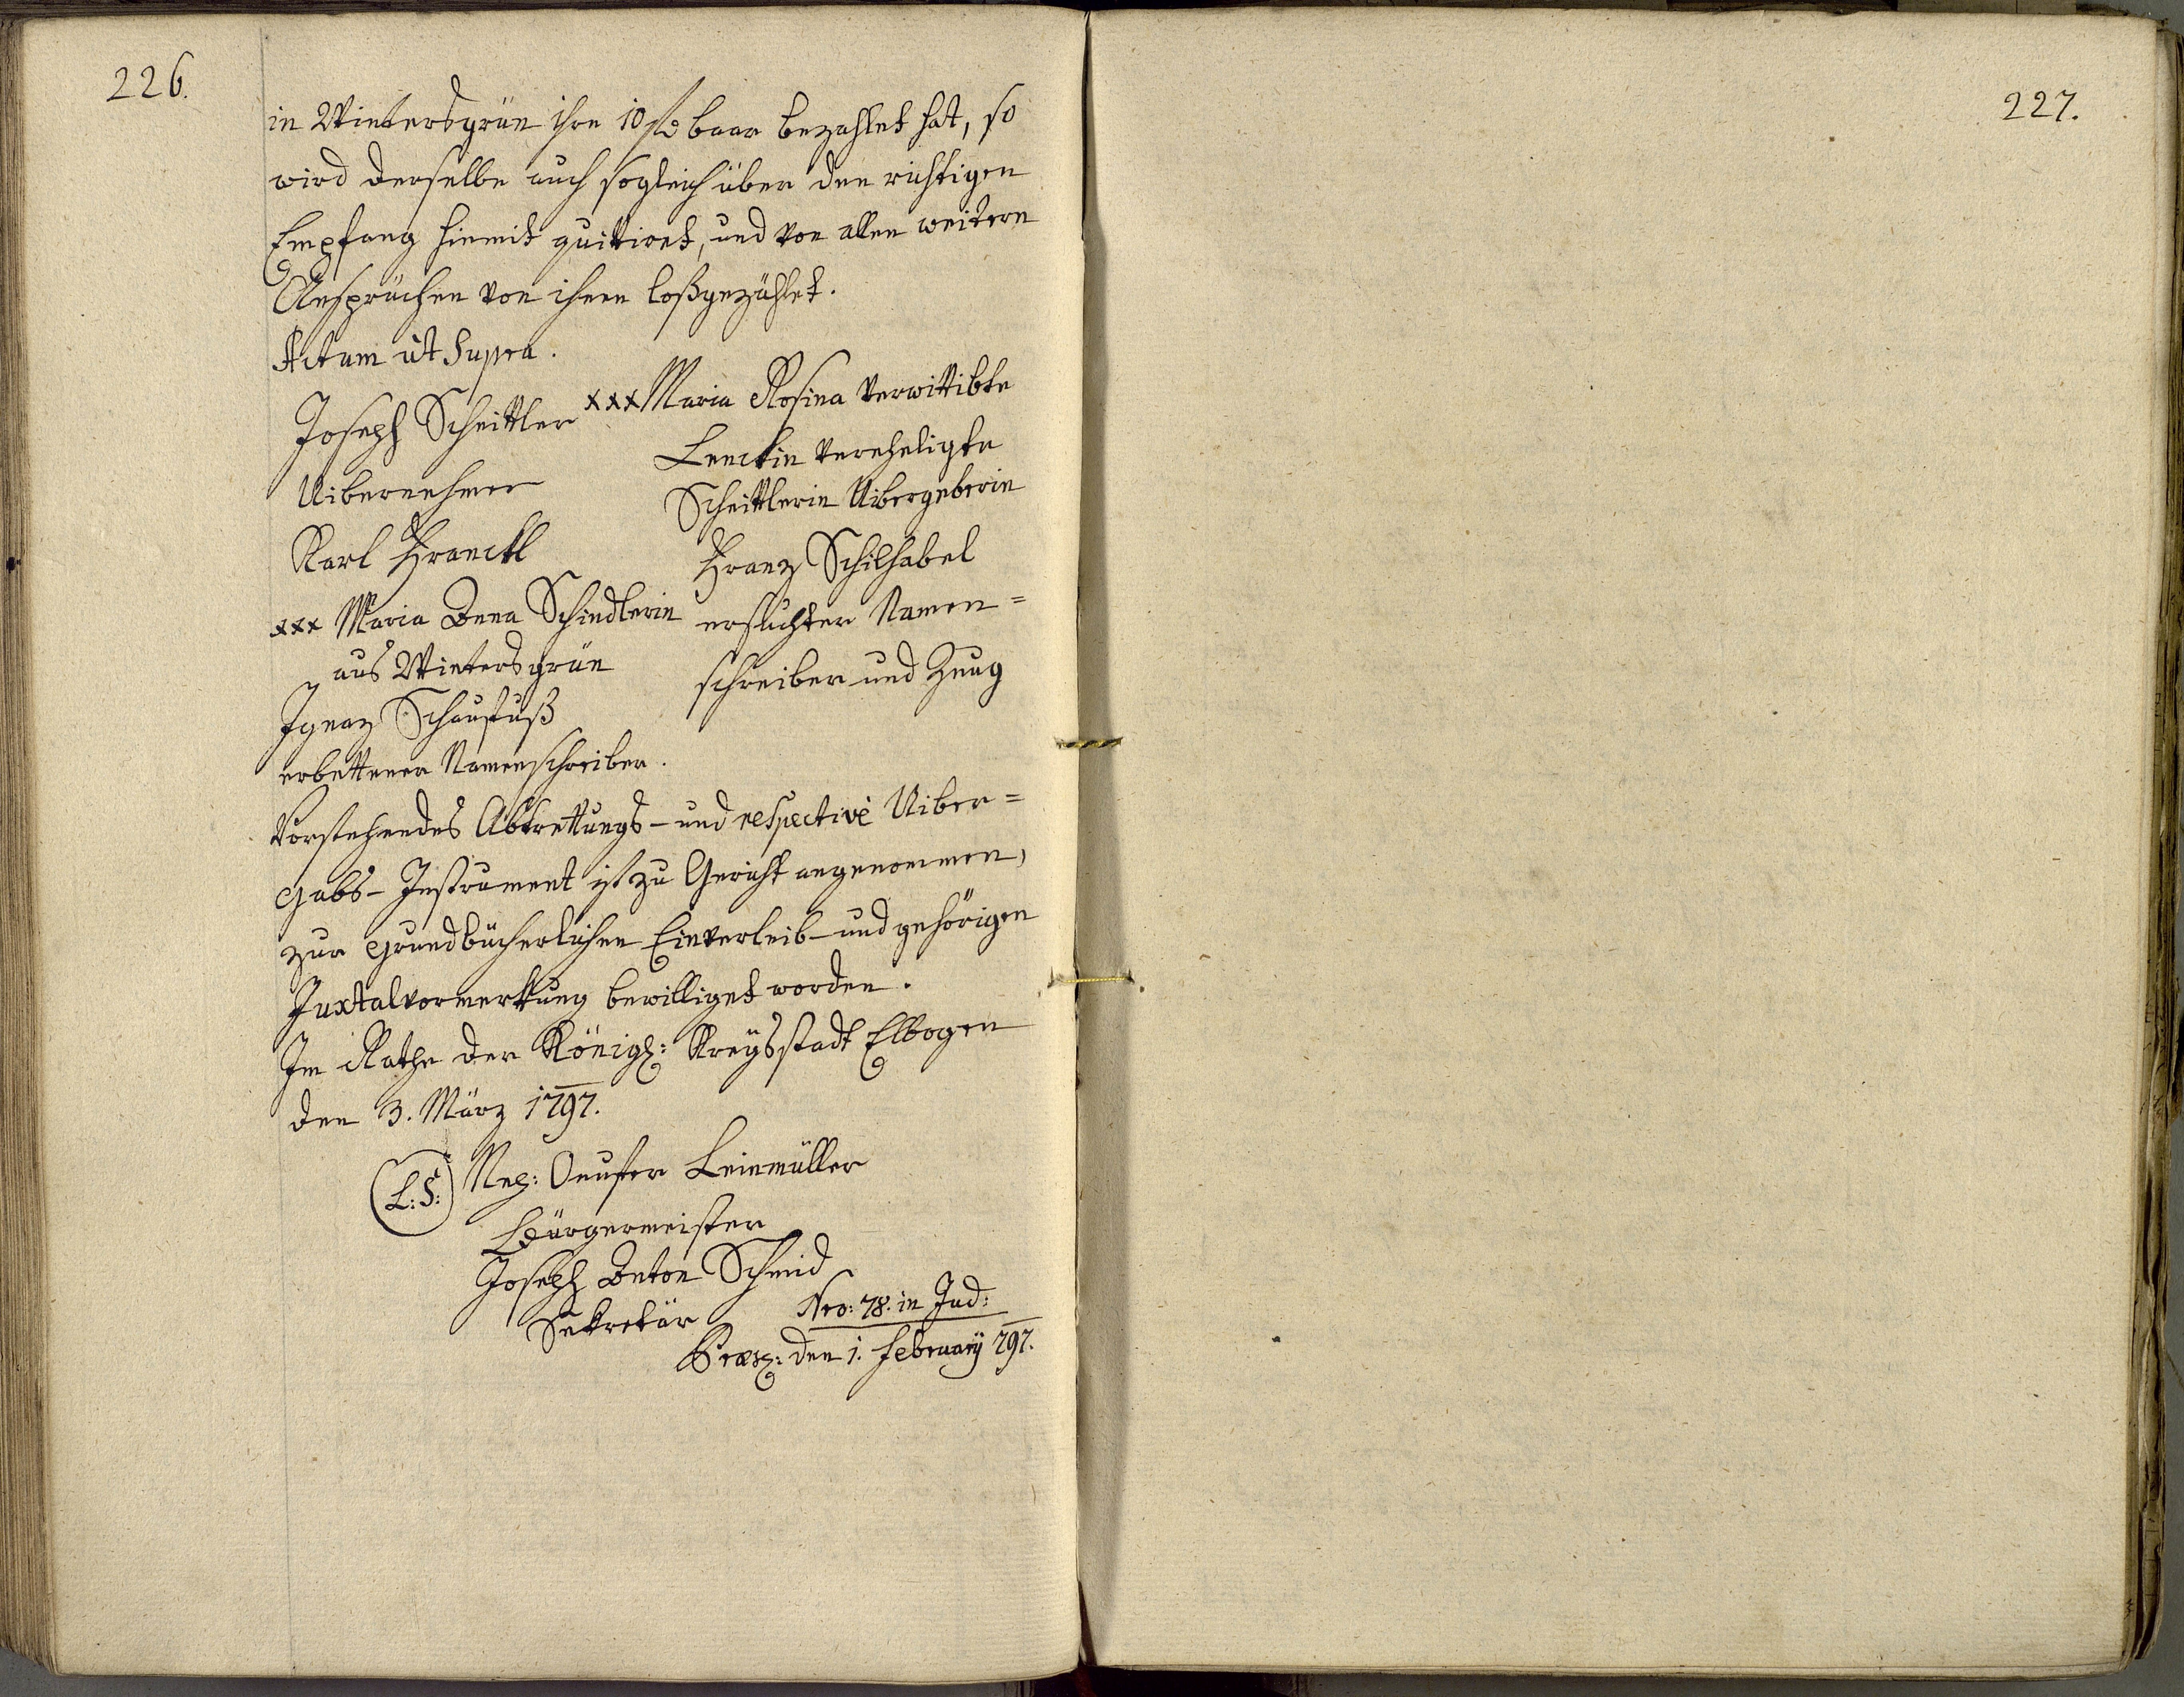 226.
in Wintersgrün ihre 10 f baar bezahlet hat, so
wird derselbe auch sogleich über den richtigen
Empfang hiemit quittiret, und von allen weitern
Ansprüchen von ihnen loßgezählet.
Actum ut Supra.
Joseph Scheittler
Uibernehmer
Karl Franckl
xxx Maria Anna Schindlerin
aus Wintersgrün
Ignaz Schaufuß
erbettener Namenschreiber.
xxx Maria Rosina verwittibte
Lenckin vereheligte
Scheittlerin Uibergeberin
Franz Schilhabel
ersuchter Namen=
schreiber und Zeug
Vorstehendes Abtrettungs- und respective Uiber=
gabs- Instrument ist zu Gericht angenommen,
zur grundbücherlichen Einverleib- und gehörigen
Juxtalvormerkung bewilliget worden.
Im Rathe der Königl: Kreysstadt Elbogen
den 3. März 1797.
(L:S:) Nep: Leinmüller
Bürgermeister
Joseph Anton Schmid
Sekretär
Nro: 78. in Jud:
Præs: den 1. February 797.
227.